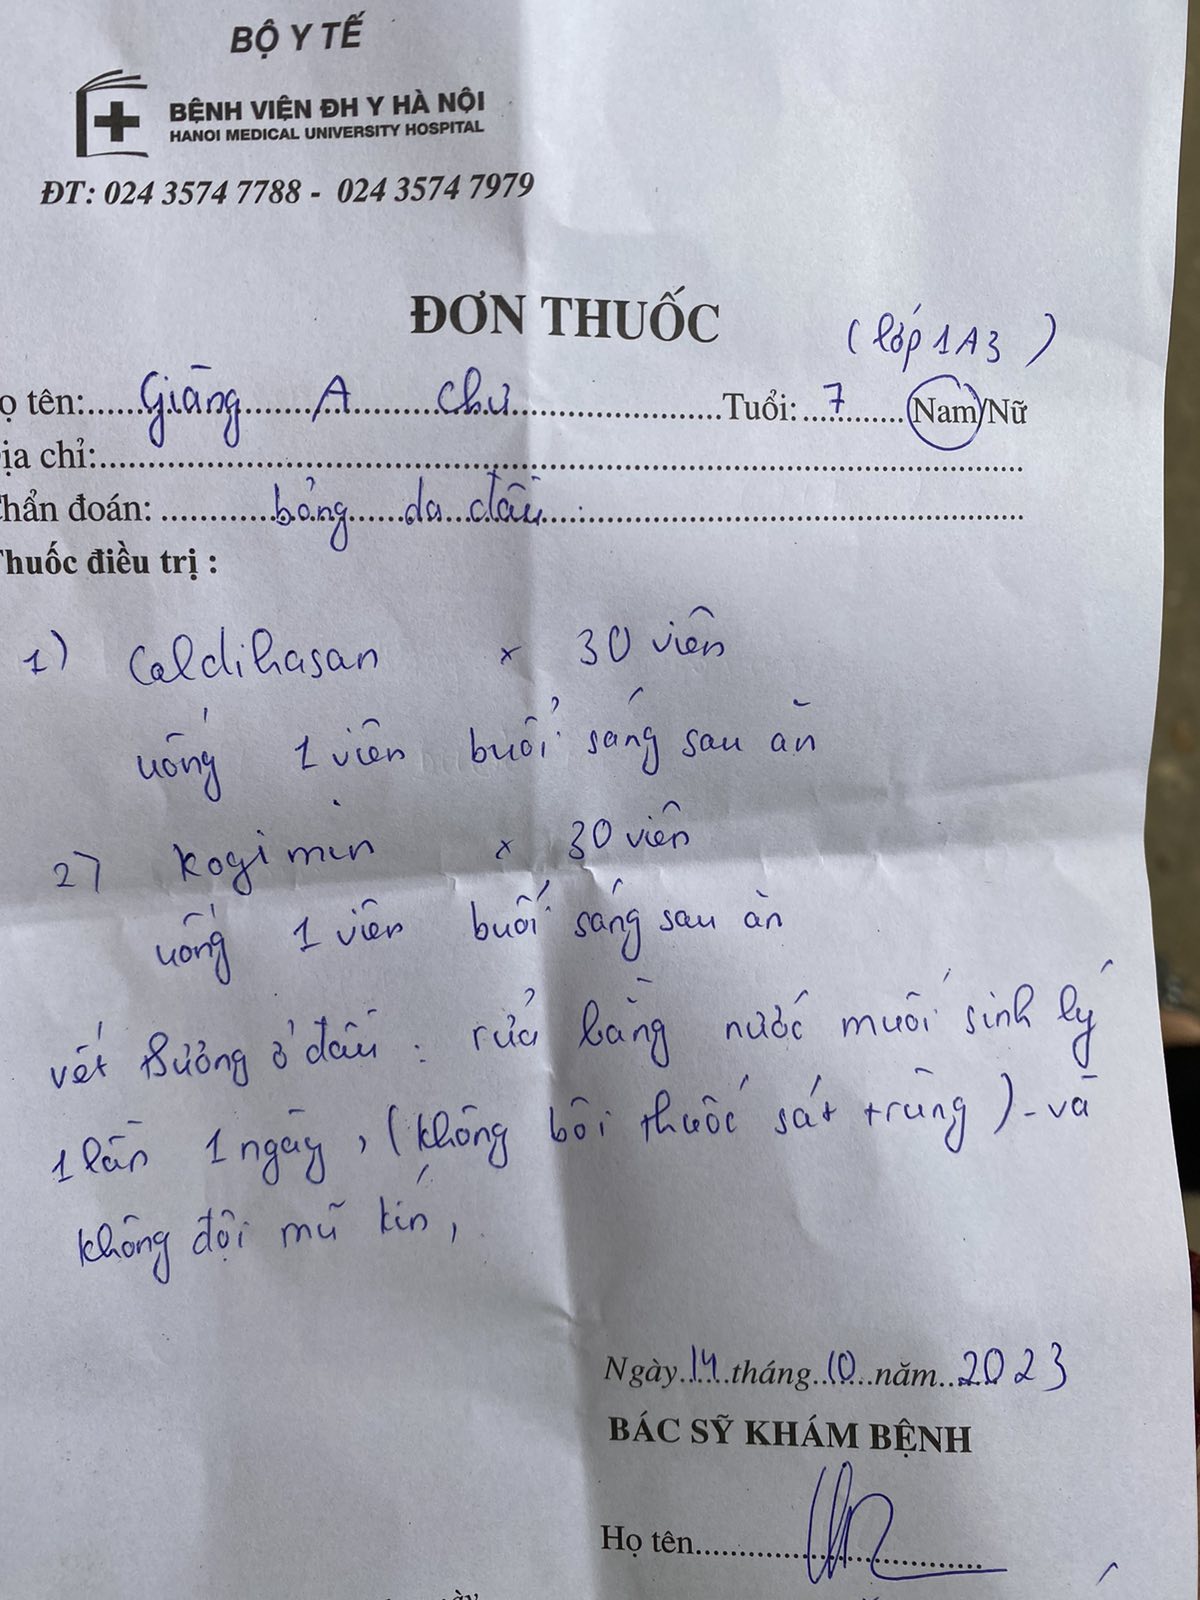 BỘ Y TẾ
BỆNH VIỆN ĐH Y HÀ NỘI
HANOI MEDICAL UNIVERSITY HOSPITAL
ĐT: 024 3574 7788 - 024 3574 7979
ĐƠN THUỐC
(lớp 1A3)
ọ tên:.....Giàng A Chư.....Tuổi:...7...Nam/Nữ
ịa chỉ:.....
hẩn đoán: .....bỏng da đầu.....
huốc điều trị :
1) Caldihasan x 30 viên
uống 1 viên buổi sáng sau ăn
2) Kogimin x 30 viên
uống 1 viên buổi sáng sau ăn
vết thương ở đầu : rửa bằng nước muối sinh lý
1 lần 1 ngày, (không bôi thuốc sát trùng) - và
không đội mũ kín,
Ngày..14..tháng..10..năm..2023
BÁC SỸ KHÁM BỆNH
Họ tên.....